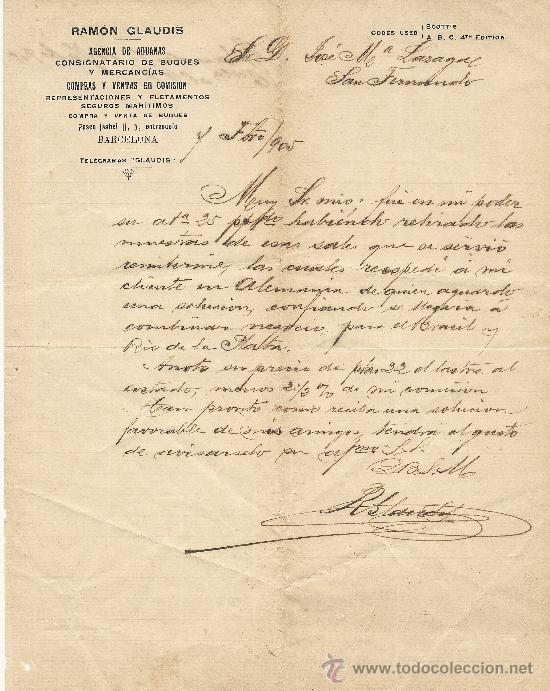 RAMÓN GLAUDIS
AGENCIA DE ADUANAS
CONSIGNATARIO DE BUQUES
Y MERCANCÍAS
COMPRAS Y VENTAS EN COMISION
REPRESENTACIONES Y FLETAMENTOS
SEGUROS MARÍTIMOS
COMPRA Y VENTA DE BUQUES
Paseo Isabel II, entresuelo
BARCELONA
TELEGRAMAS "GLAUDIS"
CODES USED SCOTT'S
A. B. C. 4TH EDITION
Sr. D. José Mª Lazaga
San Fernando
7 Fbro/905
Muy Sr. mio: fué en mi poder
su atª 25 ppdo habiendo retirado las
muestras de esas sales que se sirvió
remitirme, las cuales reexpedí á mi
cliente en Alemania de quien aguardo
una solucion, confiando se llegara á
combinar negocio para el Brasil y
Rio de la Plata.
Anoto su precio de ptas 22 el lastre al
costado, menos 2 1/2 % de mi comision
Tan pronto como reciba una solucion
favorable de mis amigos, tendrá el gusto
de avisárselo su afmo S.S.
Q.B.S.M.
R Glaudis
todocoleccion
www.todocoleccion.net